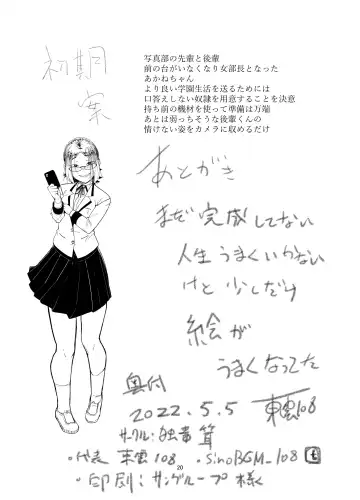 初期
案
写真部の先輩と後輩
前の台がいなくなり女部長となった
あかねちゃん
より良い学園生活を送るためには
口答えしない奴隷を用意することを決意
持ち前の機材を使って準備は万端
あとは弱っちそうな後輩くんの
情けない姿をカメラに収めるだけ
あとがき
まだ完成してない
人生うまくいかない
けど少しだけ
絵が
うまくなってた
東雲108
奥付
2022.5.5
サークル:独音
・代表 東雲108 ・SinoBGM_108
・印刷:サングループ様
20